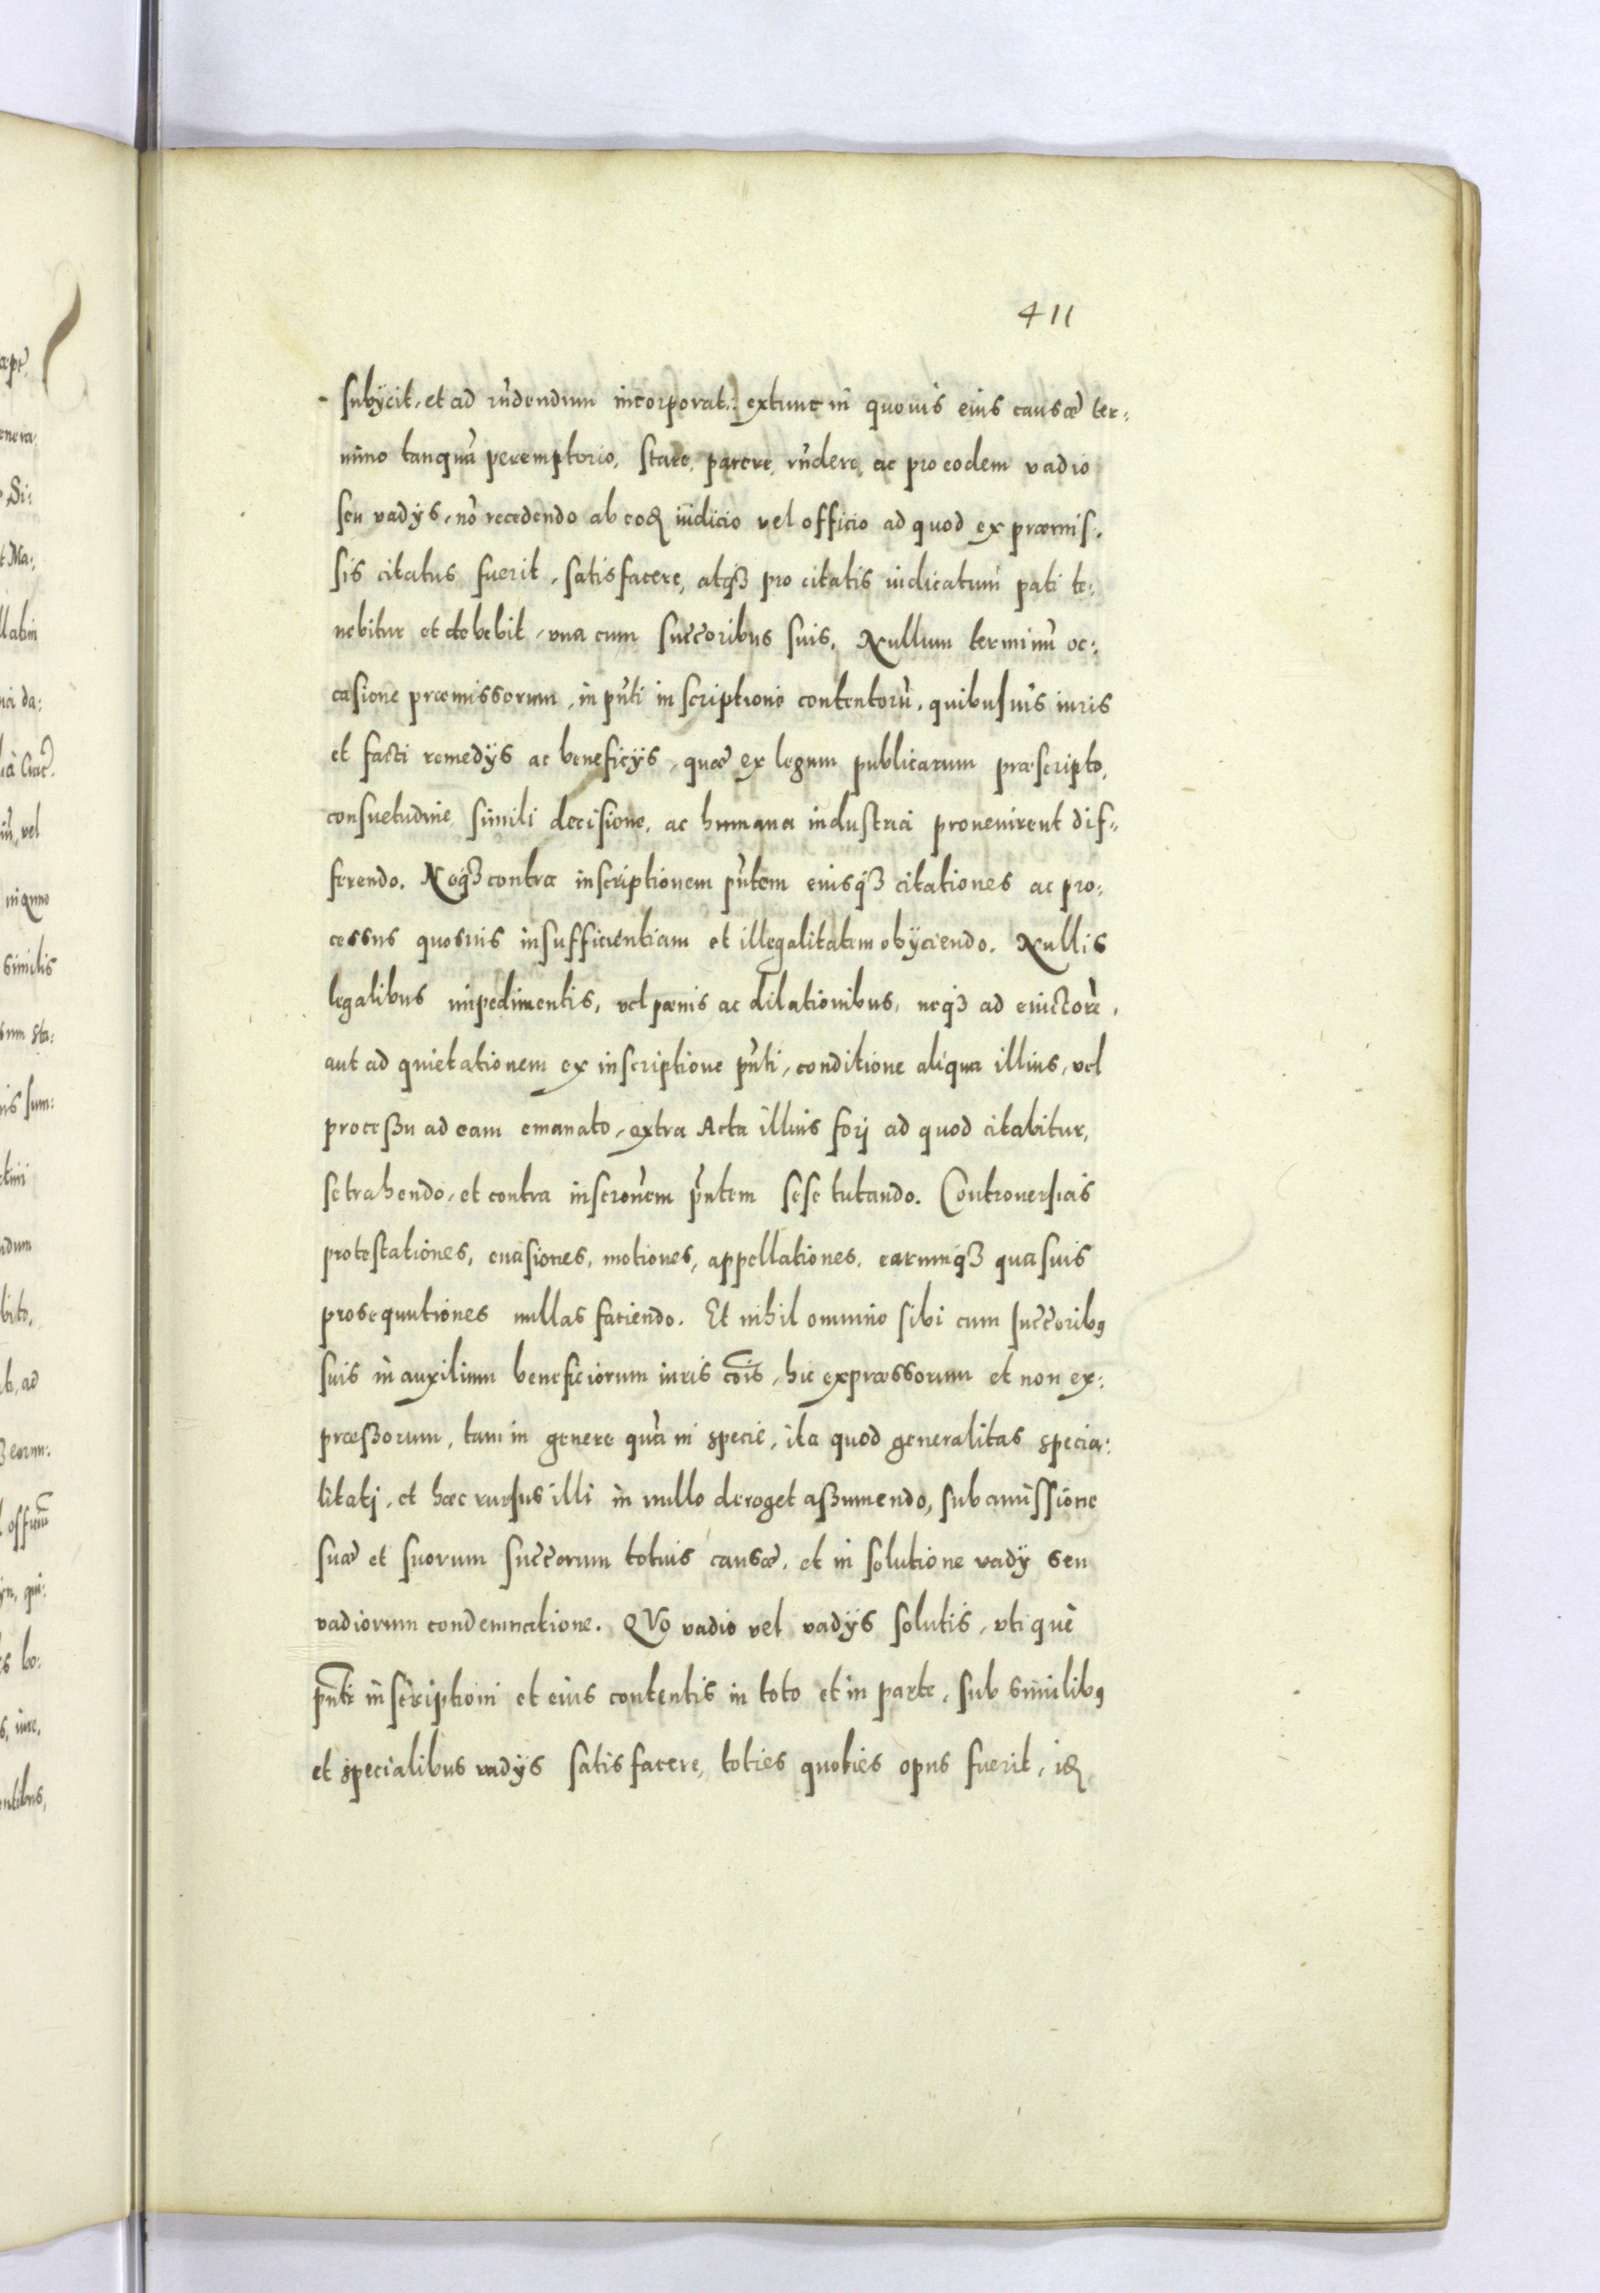 411
subÿcit, et ad rñdendum incorporat: extunc in quouis eius causæ ter:
mino tanquã peremptorio, stare, parere, rñdere, ac pro eodem vadio
seu vadÿs, nõ recedendo ab eoꝶ iudicio vel officio ad quod ex præmis:
sis citatus fuerit, satisfacere, atqꝫ pro citatis iudicatum pati te:
nebitur et debebit, vna cum succ̃oribus suis. Nullum terminũ oc:
casione præmissorum, in pñti inscriptione contentorũ, quibusuis iuris
et facti remedÿs ac beneficÿs, quæ ex legum publicarum præscripto,
consuetudine, simili decisione, ac humana industria prouenirent dif:
ferendo. Neqꝫ contra inscriptionem pñtem eiusqꝫ citationes ac pro:
cessus quosuis insufficientiam et illegalitatem obÿciendo. Nullis
legalibus impedimentis, vel pænis ac dilationibus, neqꝫ ad euictorẽ,
aut ad quietationem ex inscriptione pñti, conditione aliqua illius, vel
processu ad eam emanato, extra Acta illius forj ad quod citabitur,
se trahendo, et contra inscrõnem pñtem sese tutando. Controuersias
protestationes, euasiones, motiones, appellationes, earumqꝫ quasuis
prosequutiones nullas faciendo. Et nihil omnino sibi cum succ̃oribꝰ
suis in auxilium beneficiorum iuris cõis, hic expræssorum et non ex:
præssorum, tam in genere quã in specie, ita quod generalitas specia:
litatj, et hæc rursus illi in nullo deroget assumendo, sub amissione
suæ et suorum succ̃orum totius causæ, et in solutione vadÿ seu
vadiorum condemnatione. QVo vadio vel vadÿs solutis, vtique
pñti inscriptioni et eius contentis in toto et in parte, sub similibꝰ
et specialibus vadÿs satisfacere, toties quoties opus fuerit, iꝶ